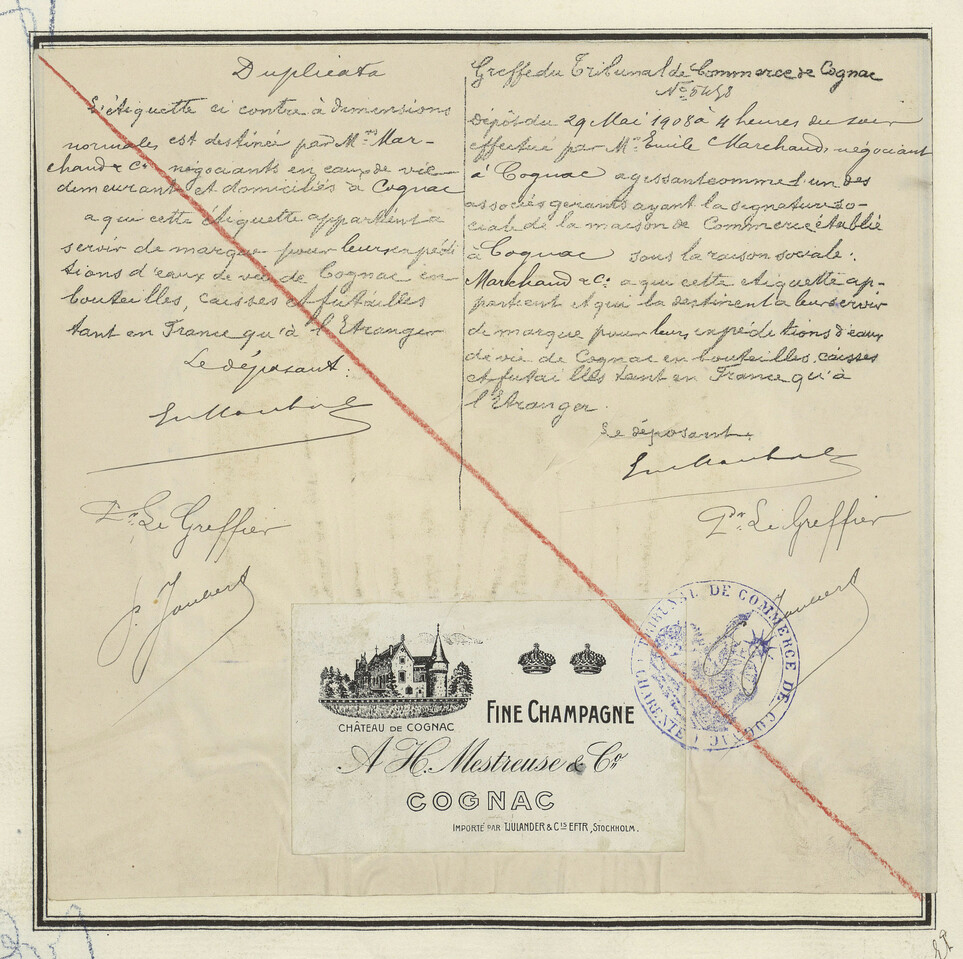 Duplicata
L'étiquette ci contre à dimensions
normales est destinée par Mrs Mar-
chand & Cie négociants en eaux de vie
demeurant et domiciliés à Cognac
a qui cette étiquette appartient a
servir de marque pour leurs expédi
tions d'eaux de vie de Cognac en
bouteilles, caisses et futailles
tant en France qu'à l'Etranger
Le déposant:
Pr Le Greffier
P. Joubert
Greffe du Tribunal de Commerce de Cognac
No 5498
Dépôt du 29 Mai 1908 à 4 heures du soir
effectué par Mr Emile Marchand, négociant
à Cognac agissant comme l'un des
associés gerants ayant la signature so-
ciale de la maison de Commerce établié
à Cognac sous la raison sociale:
Marchand & Cie a qui cette etiquette ap-
partient et qui la destinent a leur servir
de marque pour leurs expéditions d'eaux
de vie de Cognac en bouteilles, caisses
et futailles tant en France qu'à
l'Etranger.
Le déposant.
Pr Le Greffier
TRIBUNAL DE COMMERCE DE COGNAC
(CHARENTE)
CHÂTEAU DE COGNAC
FINE CHAMPAGNE
A H. Mestreuse & Co
COGNAC
IMPORTÉ PAR TJULANDER & Cis EFTR, STOCKHOLM.